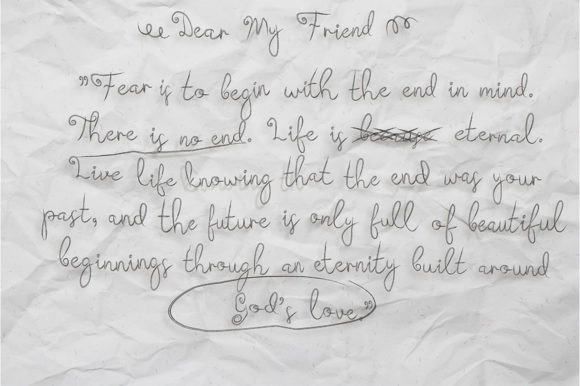 Dear My Friend
"Fear is to begin with the end in mind.
There is no end. Life is eternal.
Live life knowing that the end was your
past, and the future is only full of beautiful
beginnings through an eternity built around
God's love."